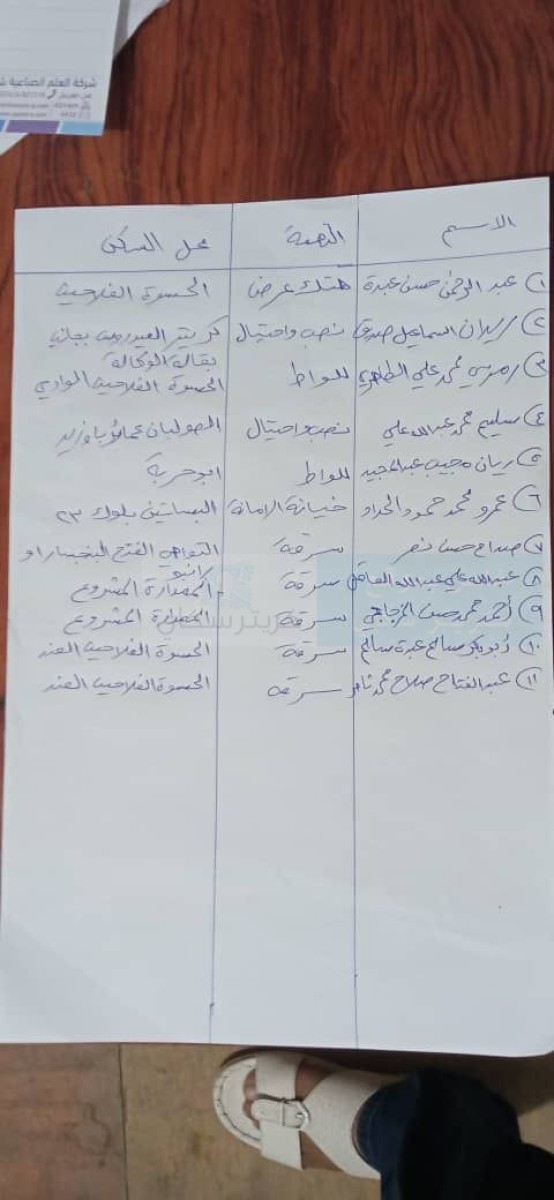 شركة العلم الصناعية
الاسم التهمة محل السكن
١ عبد الرحمن حسن عبدة هتك عرض الحسوة الفلاحين
٢ اسماعيل صدقي نصب واحتيال كريتر العيدروس بجانب
بقالة الوكالة
٣ رمزي محمد علي الطاهري للواط الحسوة الفلاحين الوادي
٤ سليم محمد عبدالله علي نصب واحتيال
٥ ريان نجيب عبدالمجيد للواط ابو حربة
٦ عمرو محمد حمود الحداد خيانة الامانة البساتين بلوك ٢٣
٧ صداح حسن نصر سرقة التواهي الفتح
٨ عبدالله علي عبدالله سرقة المشروع
٩ أحمد محمد حسن الزجاجي سرقة المشروع
١٠ أبوبكر صالح عبدة سالم سرقة الحسوة الفلاحين الهند
١١ عبدالفتاح صلاح محمد ثامر سرقة الحسوة الفلاحين الهند
كريتر سكاي